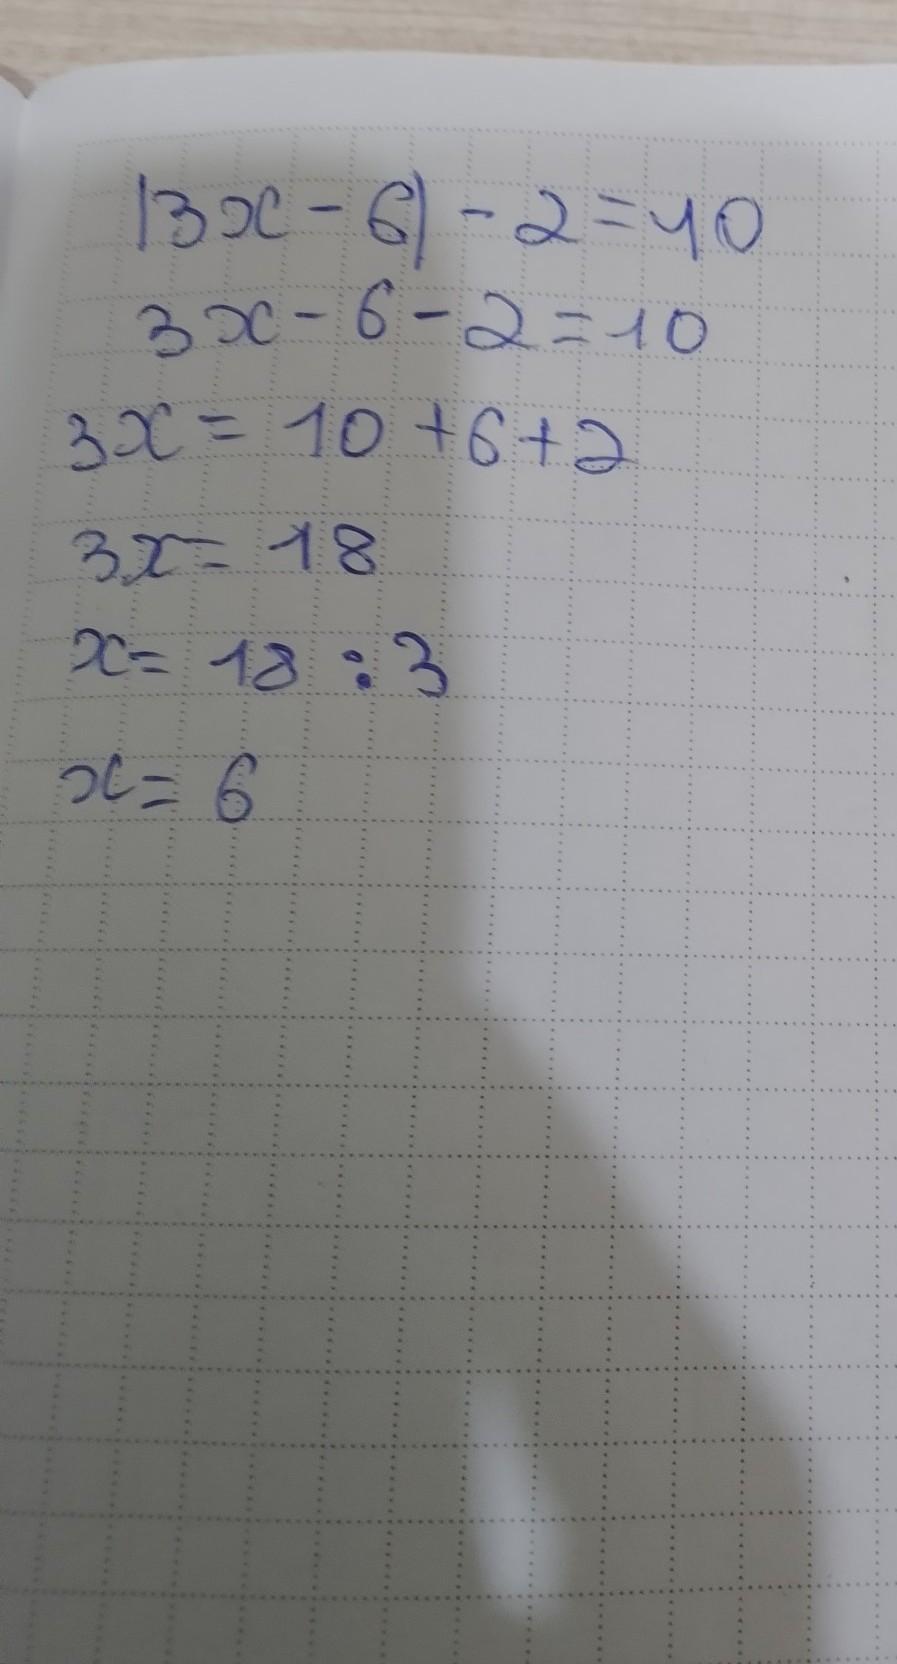 |3x - 6| - 2 = 10
3x - 6 - 2 = 10
3x = 10 + 6 + 2
3x = 18
x = 18 : 3
x = 6